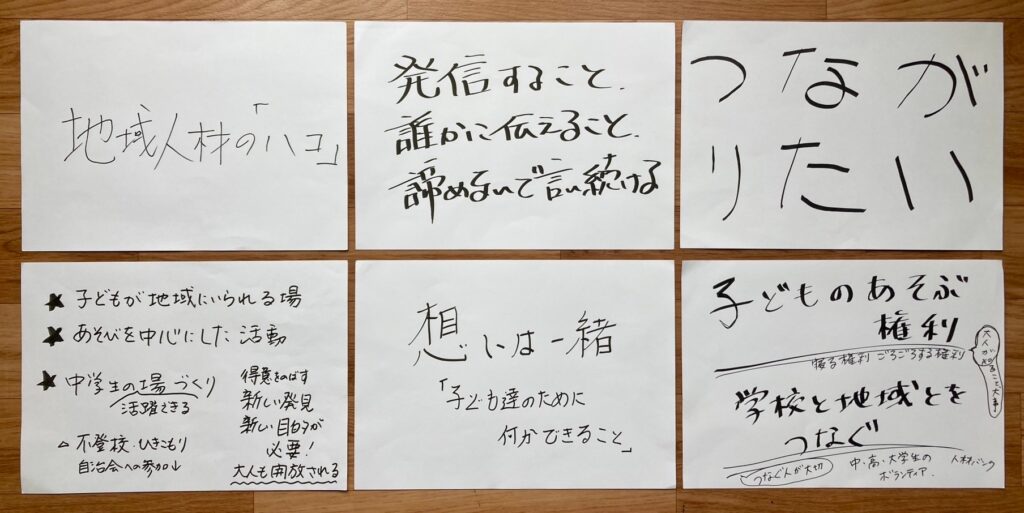 地域人材の「ハコ」
発信すること.
誰かに伝えること.
諦めないで言い続ける
つなが
りたい
★ 子どもが地域にいられる場
★ あそびを中心にした活動
★ 中学生の場づくり
活躍できる
△ 不登校・ひきこもり
自治会への参加↓
得意をのばす
新しい発見
新しい目的が
必要!
大人も開放される
想いは一緒
「子ども達のために
何かできること」
子どものあそぶ
権利
寝る権利 ごろごろする権利
大人が知ること大事!
学校と地域とを
つなぐ
つなぐ人が大切
中・高・大学生の
ボランティア.
人材バンク